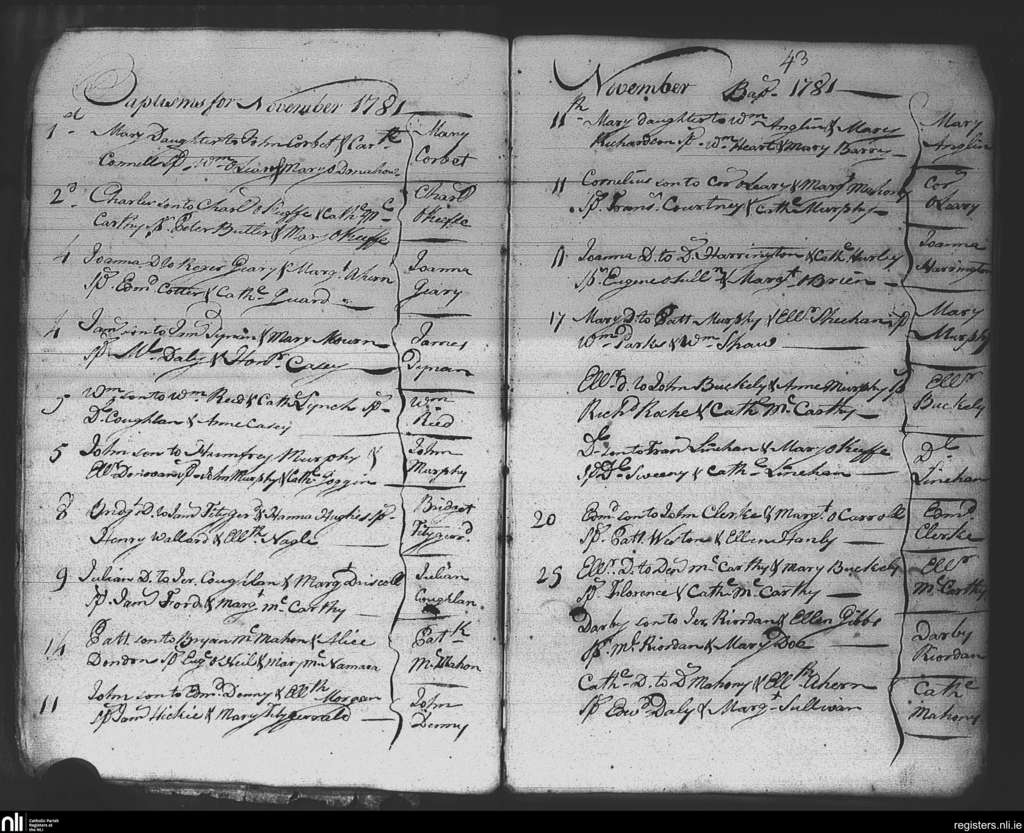 Baptisms for November 1781
1st Mary Daughter to John Corbet & Cath
Connell Sp. Wm & Mary O Donahow
Mary
Corbet
2d. Charles son to Charl OKeeffe & Cathe Mc
Carthy Sp. Peter Butler & Mary OKeeffe
Charl
OKeffe
4 Joanna D. to Roger Geary & Margt Ahern
Sp. Edmd Cotter & Cathe Guard
Joanna
Geary
4 James son to & Mary
Sp. Daly & Honr Casey
James
5 Wm son to Wm Reed & Cathe Lynch Sp.
Ds Coughlan & Anne Casey
Wm
Ried
5 John son to Humfrey Murphy &
Ellr Donovan Sp. John Murphy & Cathe Goggin
John
Murphy
8 Bridgt D. to Jams Fitzger & Hanna Hughes Sp.
Henry Wallard & Ellr Nagle
Bridget
Fitzgerd
9 Julian D. to Jer. Coughlan & Margt Driscoll
Sp. Jams Ford & Margt Mc Carthy
Julian
Coughlan
Patt son to Bryan Mc Mahon & Alice
Dondon Sp. Euge O Neil & Mary Mc Namara
Patk
Mc Mahon
11 John son to Edmd Denny & Ellth Morgan
Sp. Jams Hickie & Mary Fitzgerrald
John
Denny
43
November Bap. 1781
11th Mary daughter to Wm Anglin & Mary
Richardson Sp. Wm Heart & Mary Barry
Mary
Anglin
11 Cornelius son to Cors OLeary & Margt Mahony
Sp. Frans. Courtney & Cathe Murphy
Cors
OLeary
11 Joanna D. to Ds Harrington & Cathe Hurley
Sp. Eugene ONeill & Margt OBrien
Joanna
Harrington
17 Mary D. to Patt Murphy & Ellr Sheehan Sp
Wm Parks & Wm Shaw
Mary
Murphy
Ellr D. to John Buckely & Anne Murphy Sp
Richd Roche & Cathe Mc Carthy
Ellr
Buckely
Dl son to Fran Linehan & Mary OKeeffe
Sp. Dl Sweeny & Cathe Linehan
Dl
Linehan
20 Edmd son to John Clerke & Margt o Carroll
Sp. Patt Weston & Ellen Hanby
Edmd
Clerke
25 Ellr D. to Den Mc Carthy & Mary Buckely
Sp Florence & Cathe Mc Carthy
Ellr
Mc Carthy
Darby son to Jer Riordan & Ellen Gibbs
Sp. Ml Riordan & Mary Doe
Darby
Riordan
Cathe D. to Ds Mahony & Ellth Ahern
Sp Edwd Daly & Margt Sullivan
Cathe
Mahony
nli Catholic Parish
Registers at
the NLI
registers.nli.ie